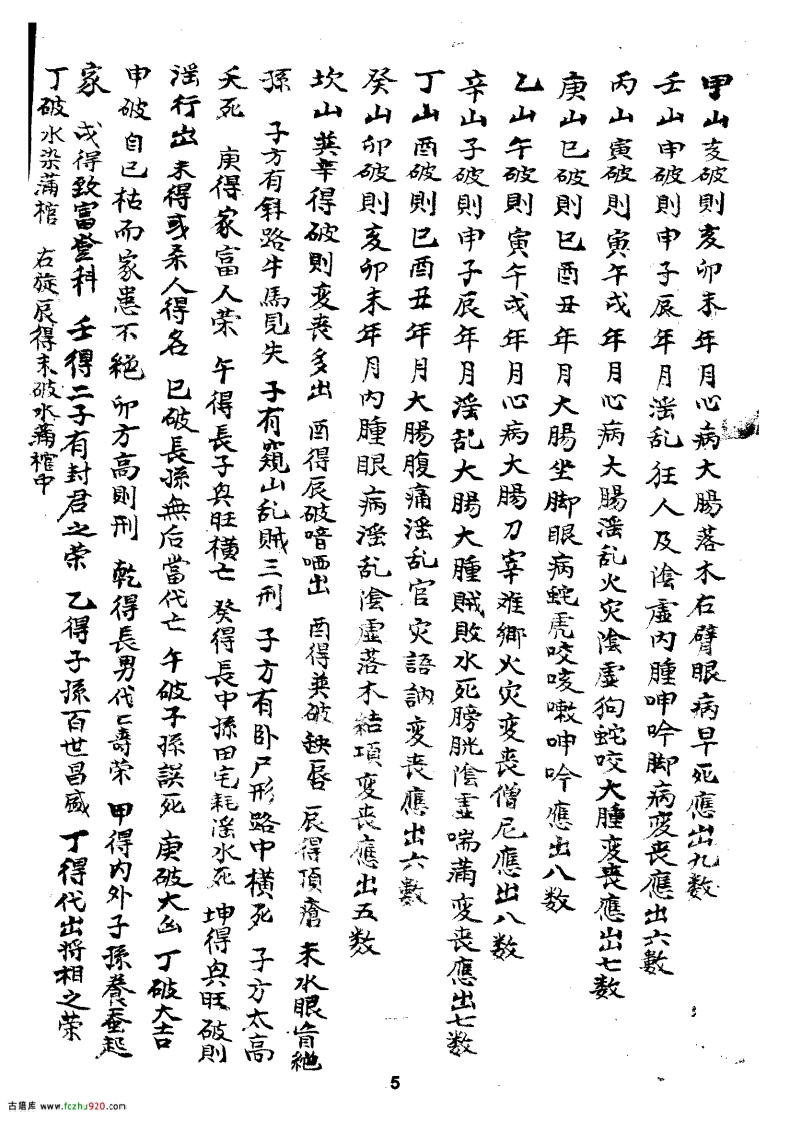 甲山亥破則亥卯未年月心病大腸落木右臂眼病早死應出九数
壬山申破則申子辰年月淫乱狂人及陰虛內腫呻吟脚病変喪應出六數
丙山寅破則寅午戌年月心病大腸淫乱火灾陰虛狗蛇咬大腫変喪應出七数
庚山巳破則巳酉丑年月大腸坐脚眼病蛇虎咬咳嗽呻吟應出八数
乙山午破則寅午戌年月心病大腸刀宰难鄉火灾変喪僧尼應出八数
辛山子破則申子辰年月淫乱大腸大腫賊敗水死膀胱陰虛喘滿変喪應出七数
丁山酉破則巳酉丑年月大腸腹痛淫乱官灾語訥変喪應出六數
癸山卯破則亥卯未年月內腫眼病淫乱陰虛落木結項変喪應出五数
坎山巽辛得破則変喪多出 酉得辰破喑哂出 酉得巽破缺唇 辰得頂瘡 未水眼盲絶
孫 子方有斜路牛馬見失 子有窺山乱賊三刑 子方有卧尸形路中横死 子方太高
夭死 庚得家富人荣 午得長子與旺横亡 癸得長中孫田宅耗淫水死 坤得與旺破則
淫行出 未得或柔人得名 巳破長孫無后當代亡 午破子孫誤死 庚破大凶 丁破大吉
申破自已枯而家患不絕 卯方高則刑 乾得長男代亡寿荣 甲得内外子孫養蚕起
家 戌得致富登科 壬得二子有封君之荣 乙得子孫百世昌盛 丁得代出將相之荣
丁破水染蒲棺 右旋辰得未破水蒲棺中
5
古籍库 www.fczhu920.com